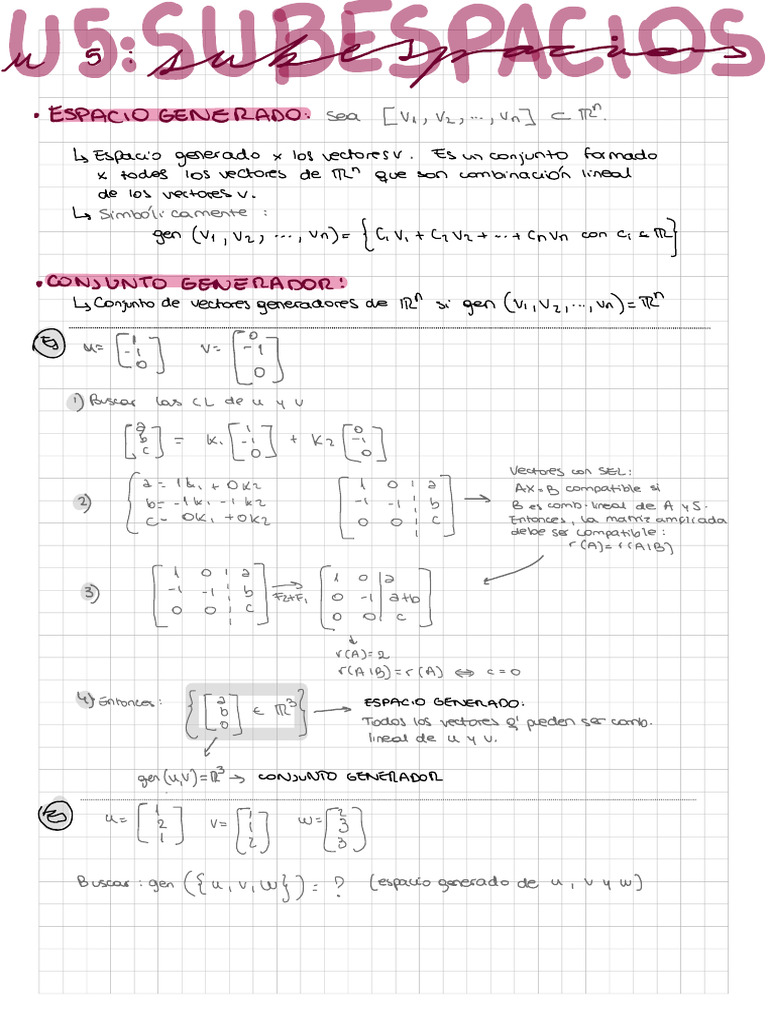 U5:SUBESPACIOS
u 5: subespacios
• ESPACIO GENERADO: sea [v1, v2, ..., vn] ⊂ ℝⁿ.
↳ Espacio generado x los vectores v. Es un conjunto formado
x todos los vectores de ℝⁿ que son combinación lineal
de los vectores v.
↳ Simbólicamente:
gen (v1, v2, ..., vn) = {C1 V1 + C2 V2 + ... + Cn Vn con ci ∈ ℝ}
• CONJUNTO GENERADOR:
↳ Conjunto de vectores generadores de ℝⁿ si gen (v1, v2, ..., vn) = ℝⁿ
Ej u = [1 -1 0] v = [0 -1 0]
1) Buscar las CL de u y v
[a b c] = k1 [1 -1 0] + k2 [0 -1 0]
2) { a = 1k1 + 0k2
b = -1k1 - 1k2
c = 0k1 + 0k2
[1 0 | a
-1 -1 | b
0 0 | c] →
Vectores con SEL:
AX = B compatible si
B es comb. lineal de A y S.
Entonces, la matriz ampliada
debe ser compatible:
r(A) = r(A|B)
3) [1 0 | a
-1 -1 | b
0 0 | c]
→ F2+F1
[1 0 | a
0 -1 | a+b
0 0 | c]
↓
r(A) = 2
r(A|B) = r(A) ⇔ c = 0
4) Entonces: {[a b 0] ∈ ℝ³} →
ESPACIO GENERADO:
Todos los vectores q' pueden ser comb.
lineal de u y v.
gen(u,v) = ℝ³ → CONJUNTO GENERADOR
Ej u = [1 2 1] v = [1 1 2] w = [2 3 3]
Buscar: gen ({u, v, w}) = ? (espacio generado de u, v y w)